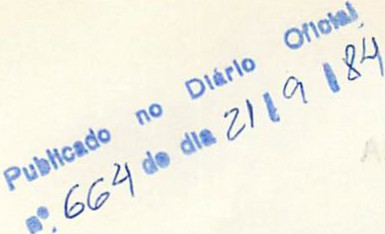 Publicado no Diário Oficial
nº. 664 do dia 21 | 9 | 84